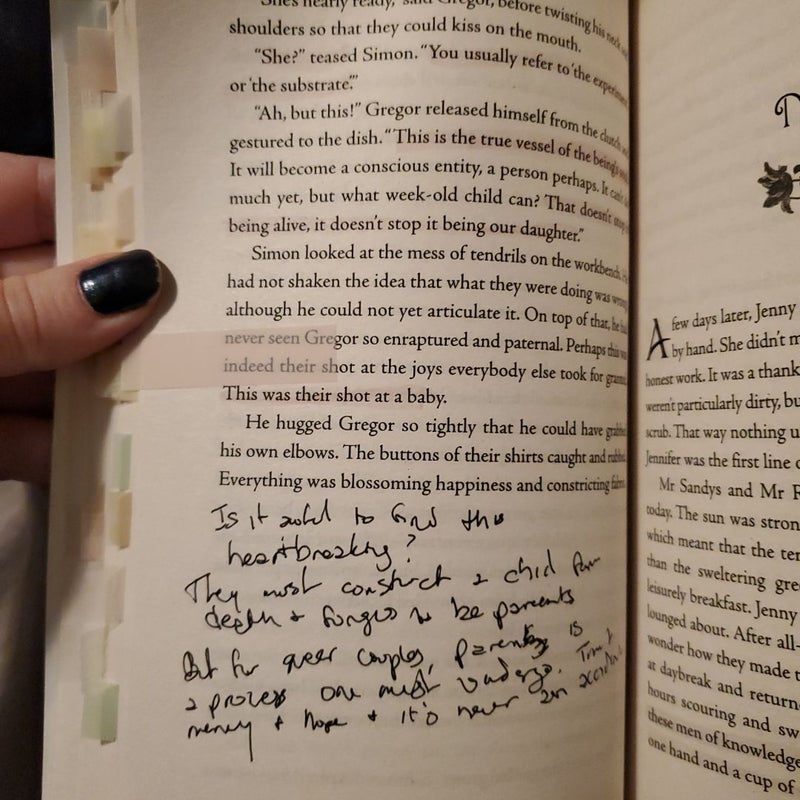 She's nearly ready," said Gregor, before twisting his neck
shoulders so that they could kiss on the mouth.
"She?" teased Simon. "You usually refer to 'the experiment'
or 'the substrate'."
"Ah, but this!" Gregor released himself from the clutch
gestured to the dish. "This is the true vessel of the being's
It will become a conscious entity, a person perhaps. It can't
much yet, but what week-old child can? That doesn't stop
being alive, it doesn't stop it being our daughter."
Simon looked at the mess of tendrils on the workbench,
had not shaken the idea that what they were doing was wrong
although he could not yet articulate it. On top of that, he had
never seen Gregor so enraptured and paternal. Perhaps this was
indeed their shot at the joys everybody else took for granted.
This was their shot at a baby.
He hugged Gregor so tightly that he could have grabbed
his own elbows. The buttons of their shirts caught and rubbed
Everything was blossoming happiness and constricting fabric.
Is it to find this
heartbreaking?
They must construct a child from
death & to be parents
But for queer couples, parenting is
a process one must undergo. Time
money & hope & it's never an
A few days later, Jenny
by hand. She didn't m
honest work. It was a thank
weren't particularly dirty, bu
scrub. That way nothing u
Jennifer was the first line o
Mr Sandys and Mr F
today. The sun was stron
which meant that the ten
than the sweltering gre
leisurely breakfast. Jenny
lounged about. After all-
wonder how they made t
at daybreak and return
hours scouring and sw
these men of knowledge
one hand and a cup of